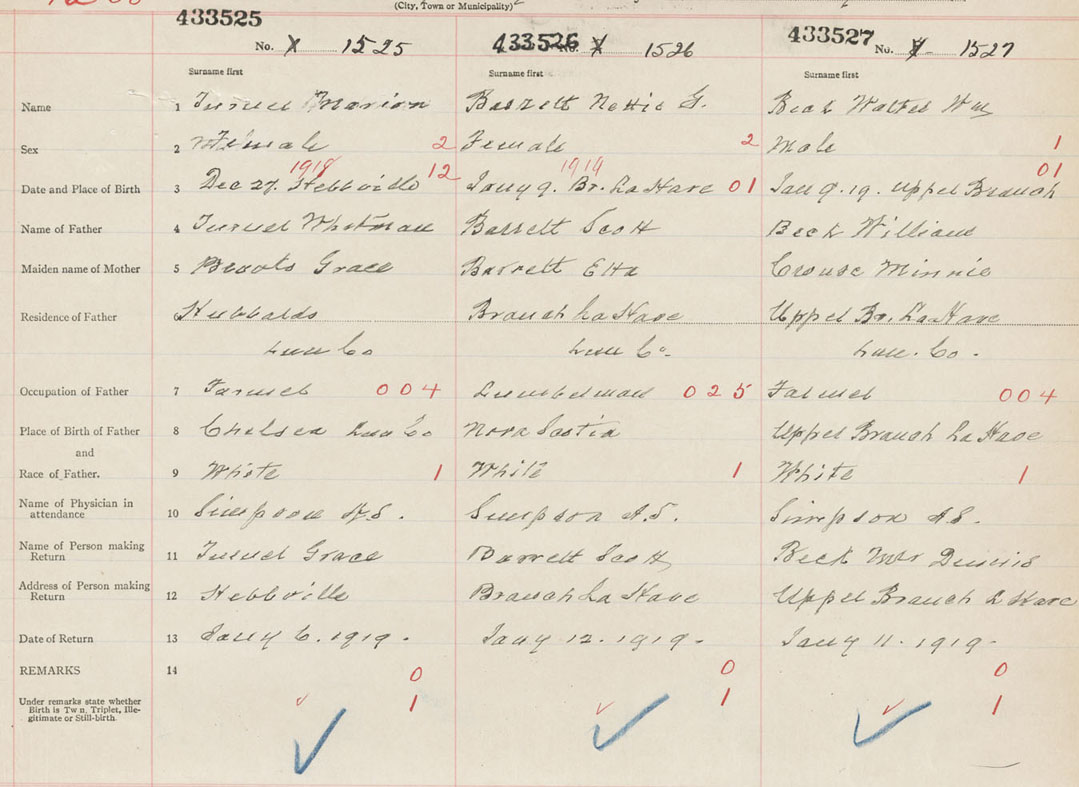 (City, Town or Municipality)
433525 433526 433527
No. 1525 No. 1526 No. 1527
Surname first Surname first Surname first
Name 1 Turner Marion Barrett Nettie G. Beck Walter Wm
Sex 2 Female 2 Female 2 Male 1
1918 12 1919 01
Date and Place of Birth 3 Dec 27. Hebbville Jany 9. Br. LaHave 01 Jan 9. 19. Upper Branch
Name of Father 4 Turner Whitman Barrett Scott Beck William
Maiden name of Mother 5 Grace Barrett Etta Crouse Minnie
Residence of Father Branch LaHave Upper Br. LaHave
Lun Co Lun Co. Lun. Co.
Occupation of Father 7 Farmer 004 Lumberman 025 Farmer 004
Place of Birth of Father 8 Chelsea Lun Co Nova Scotia Upper Branch LaHave
and
Race of Father. 9 White 1 White 1 White 1
Name of Physician in
attendance 10 Simpson A.S. Simpson A.S. Simpson A.S.
Name of Person making
Return 11 Turner Grace Barrett Scott Beck Mrs Dennis
Address of Person making
Return 12 Hebbville Branch La Have Upper Branch L Have
Date of Return 13 Jany 6. 1919. Jany 12. 1919. Jany 11. 1919.
REMARKS 14 0 0 0
Under remarks state whether
Birth is Twn, Triplet, Ille-
gitimate or Still-birth. 1 1 1